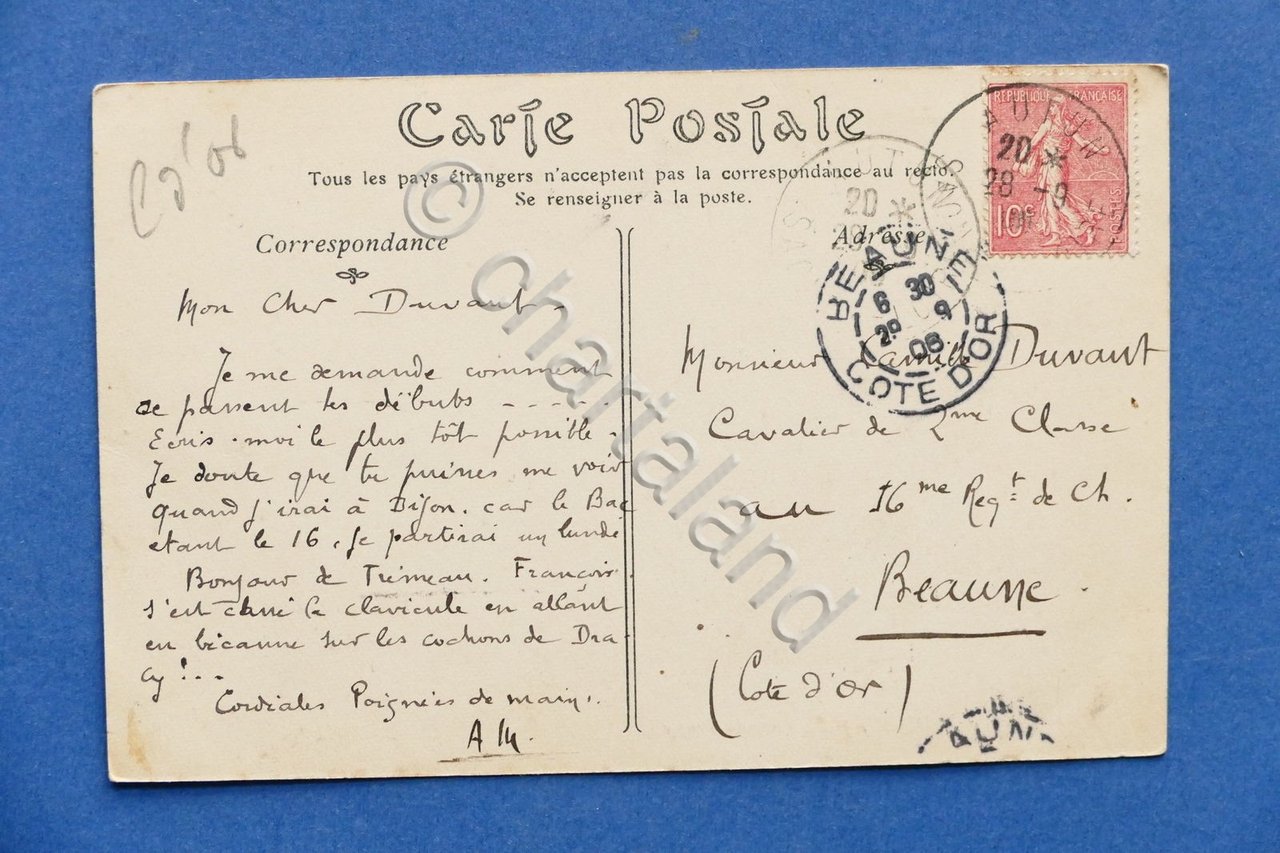 Carte Postale
Tous les pays étrangers n'acceptent pas la correspondance au recto.
Se renseigner à la poste.
Cd'or
Correspondance
Mon Cher Duvaut.
Je me demande comment
se passent tes débuts ----
Ecris-moi le plus tôt possible.
Je doute que tu puisses me voir
quand j'irai à Dijon. car le Bac
étant le 16, je partirai un lundi
Bonjour de Trémeau. François
s'est cassé la clavicule en allant
en bécanne sur les cochons de Dra-
cy!..
Cordiales Poignées de main.
A M.
Adresse
Monsieur Camille Duvaut
Cavalier de 2me Classe
au 16me Regt de Ch.
Beaune.
(Cote d'Or)
REPUBLIQUE FRANÇAISE
10c
POSTES
AUTUN
20 *
28 -9
AUTUN
20 *
BEAUNE
6 30
29 9
08
COTE D'OR
© chartaland